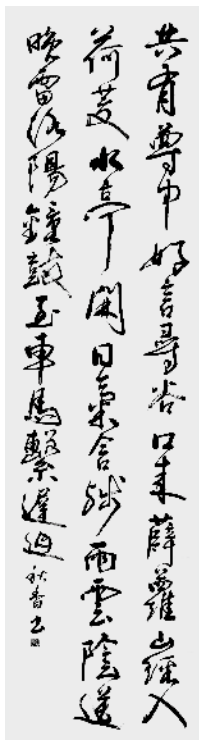 共有尊中好言尋谷口来薜蘿山徑入
荷芰水亭開日氣含殘雨雲陰送
晚雷洛陽鐘鼓至車馬繫遲迴 秋香书